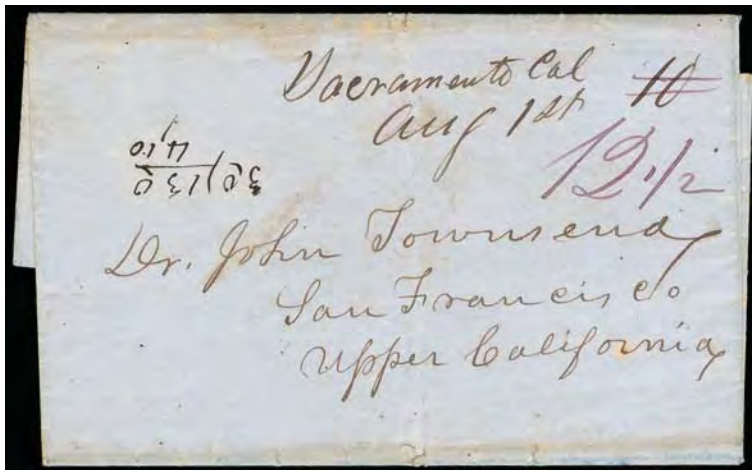 Sacramento Cal 10
Aug 1st
12 1/2
Dr. John Townsend
San Francisco
Upper California